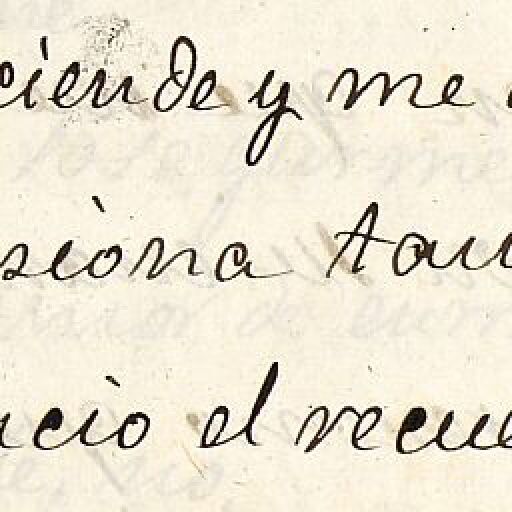 ciende y me
siona tan
ncio el recue